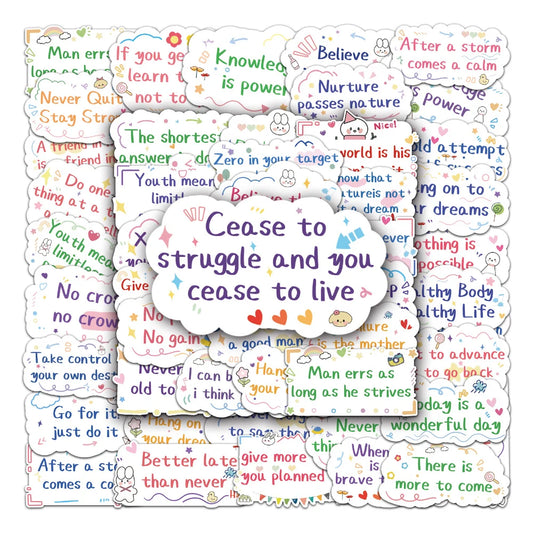 Man errs
long as he
If you ge
learn t
not to
Knowled
is power
Believe
Nurture
passes nature
After a storm
comes a calm
Never Quit
Stay Stro
edge
s power
Nice!
A friend in
is friend in
The shortes
answer do
Zero in your target
world is his
old attempt
Do one
thing at a t
Youth mean
limitl
Believe th
now that
nature is not
a dream
ng on to
r dreams
Cease to
struggle and you
cease to live
Youth mean
limitless
never
othing is
possible
Give
No cro
no crow
No
No gain
althy Body
lthy Life
a good man
is the mother
Take control
your own des
Never
old to
I can b
i think
Han
your
Man errs as
long as he strives
to advance
to go back
Go for it
just do it
Hang on
your dream
to say than
Never
oday is a
wonderful day
After a st
comes a co
Better late
than never
give more
you planned
When
is
brave
There is
more to come